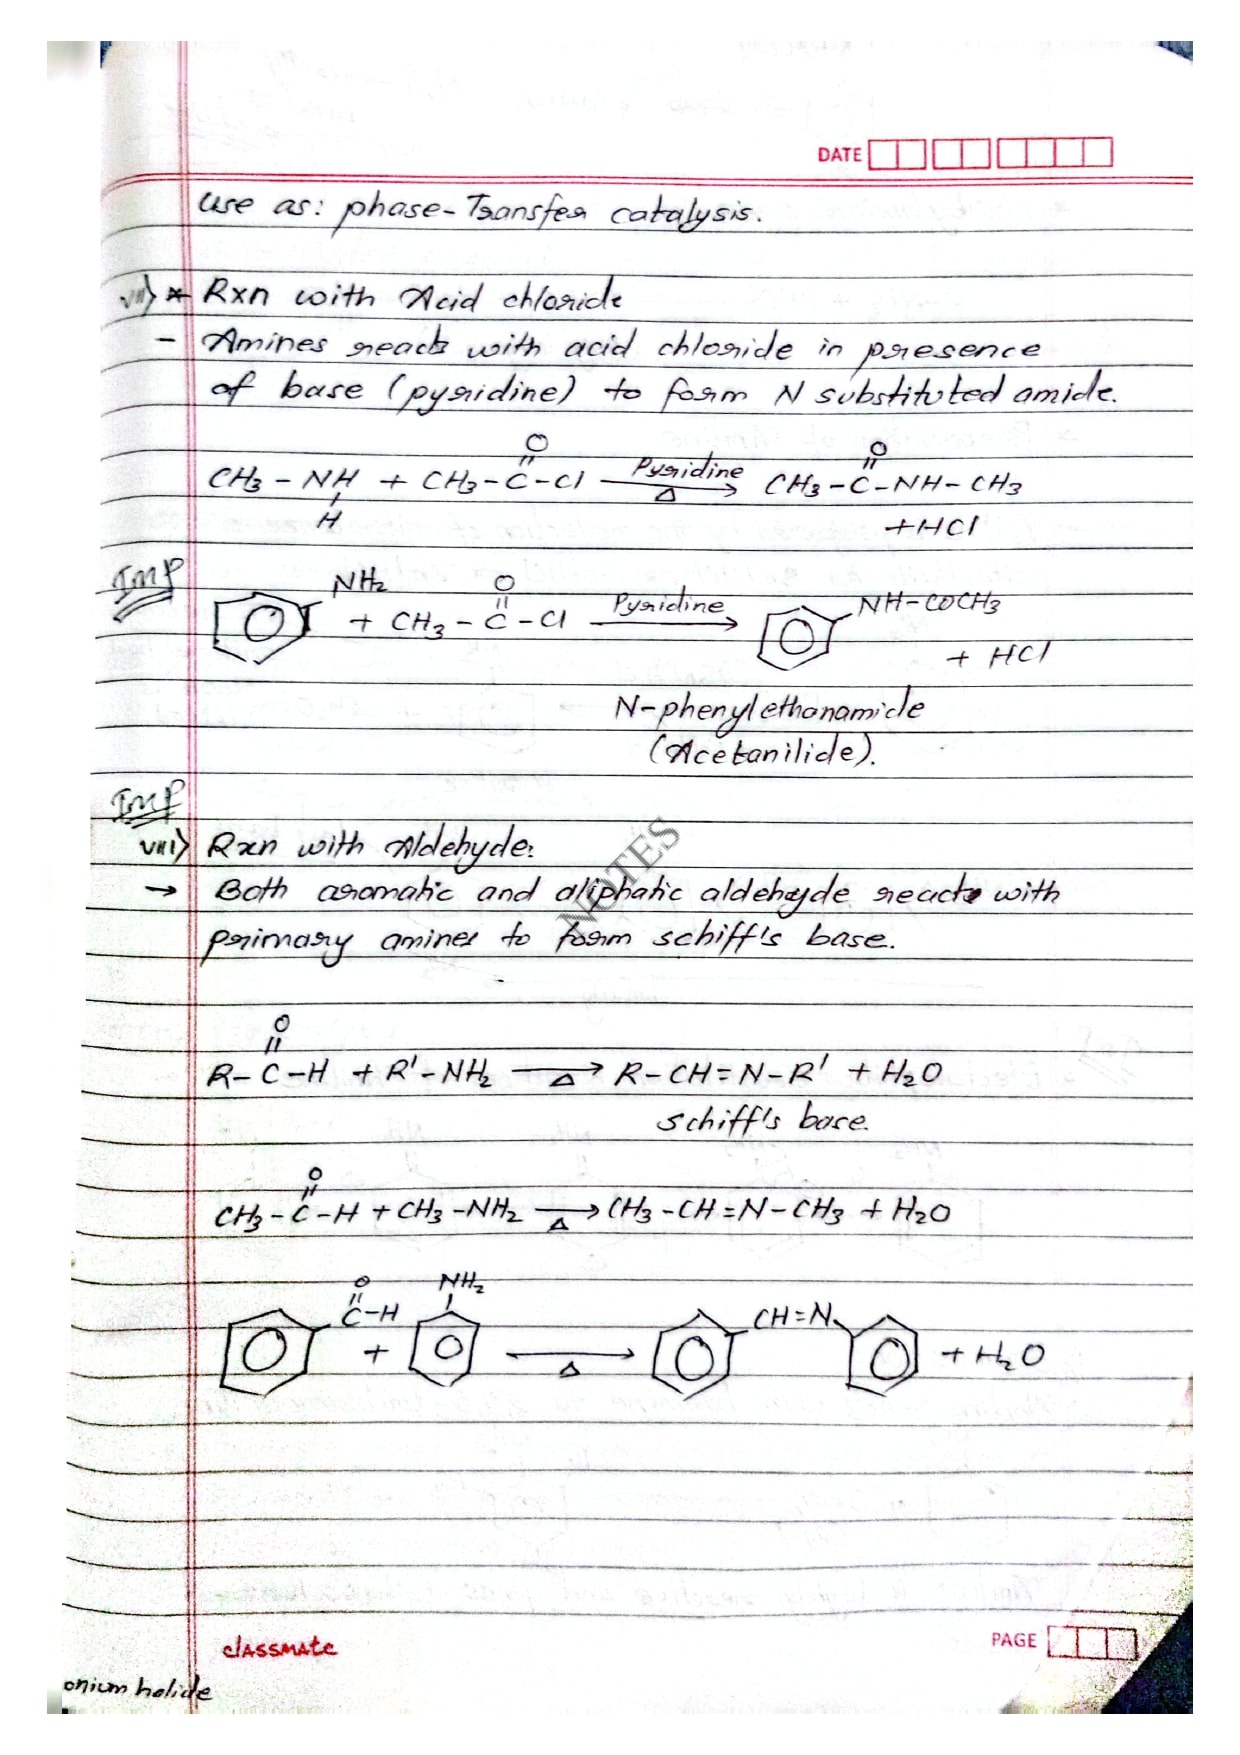 DATE
use as: phase-Transfer catalysis.
VII) * Rxn with Acid chloride
- Amines reacts with acid chloride in presence
of base (pyridine) to form N substituted amide.
O O
CH3 - NH + CH3 - C - Cl Pyridine CH3 - C - NH - CH3
H Δ + HCl
Imp
NH2 O
+ CH3 - C - Cl Pyridine NH - COCH3
+ HCl
N-phenylethanamide
(Acetanilide).
Imp
VIII) Rxn with Aldehyde:
→ Both aromatic and aliphatic aldehyde reacts with
primary amines to form schiff's base.
NOTES
O
R - C - H + R' - NH2 → Δ R - CH = N - R' + H2O
schiff's base.
O
CH3 - C - H + CH3 - NH2 → Δ CH3 - CH = N - CH3 + H2O
O NH2
C - H + → Δ CH = N + H2O
classmate
PAGE
onium halide